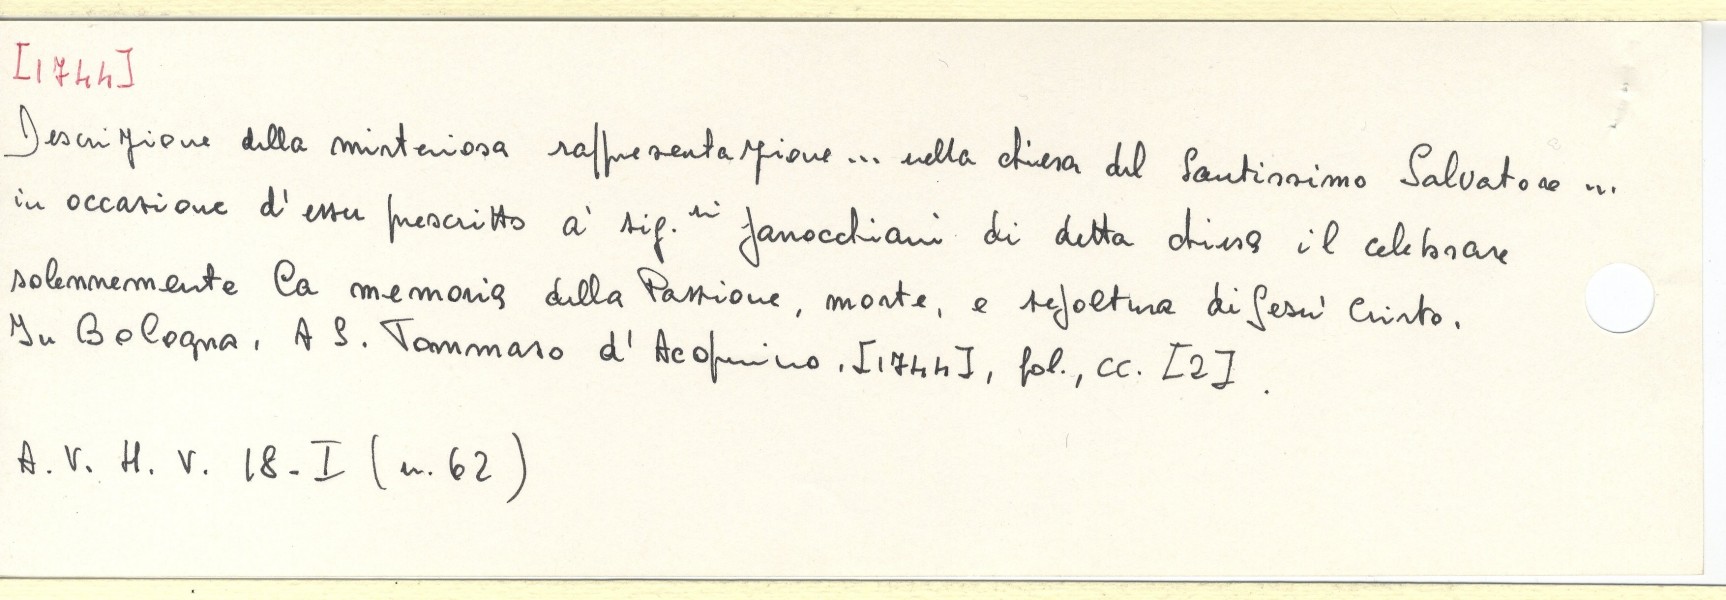 [1744]
Descrizione della misteriosa rappresentazione ... nella chiesa del Santissimo Salvatore ...
in occasione d'esser prescritto a' sig.ri parocchiani di detta chiesa il celebrare
solennemente la memoria della Passione, morte, e sepoltura di Gesù Cristo.
In Bologna, A S. Tommaso d'Acquino, [1744], fol., cc. [2].
A. V. H. V. 18-I (n. 62)